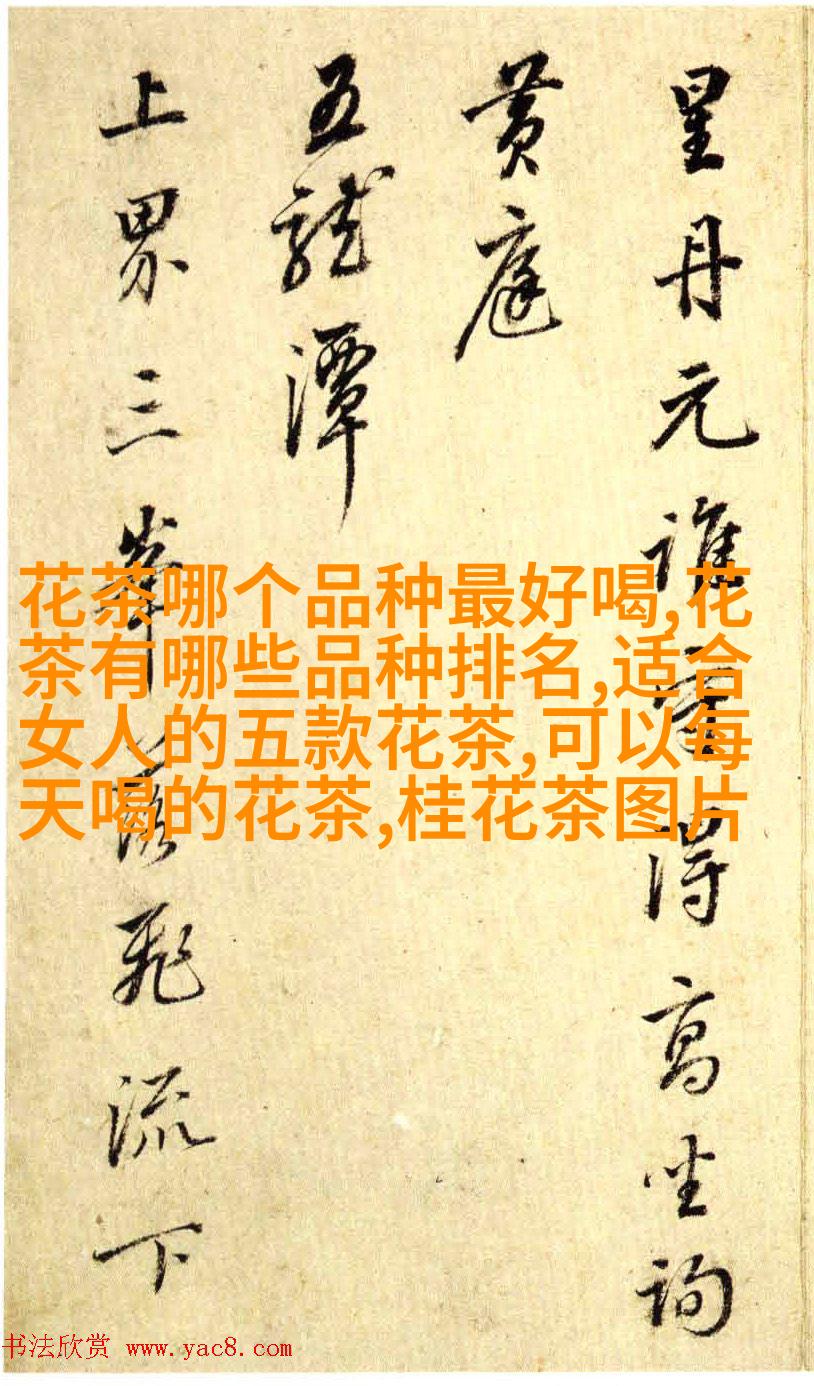 星丹元誰得高坐詢
黄庭
五龍潭
上界三峯飛流下
花茶哪个品种最好喝,花
茶有哪些品种排名,适合
女人的五款花茶,可以每
天喝的花茶,桂花茶图片
书法欣赏 www.yac8.com